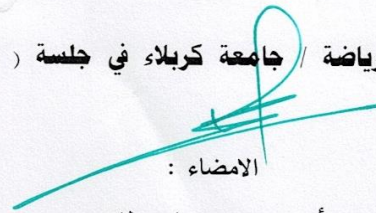 رياضة / جامعة كربلاء في جلسة (
الامضاء :